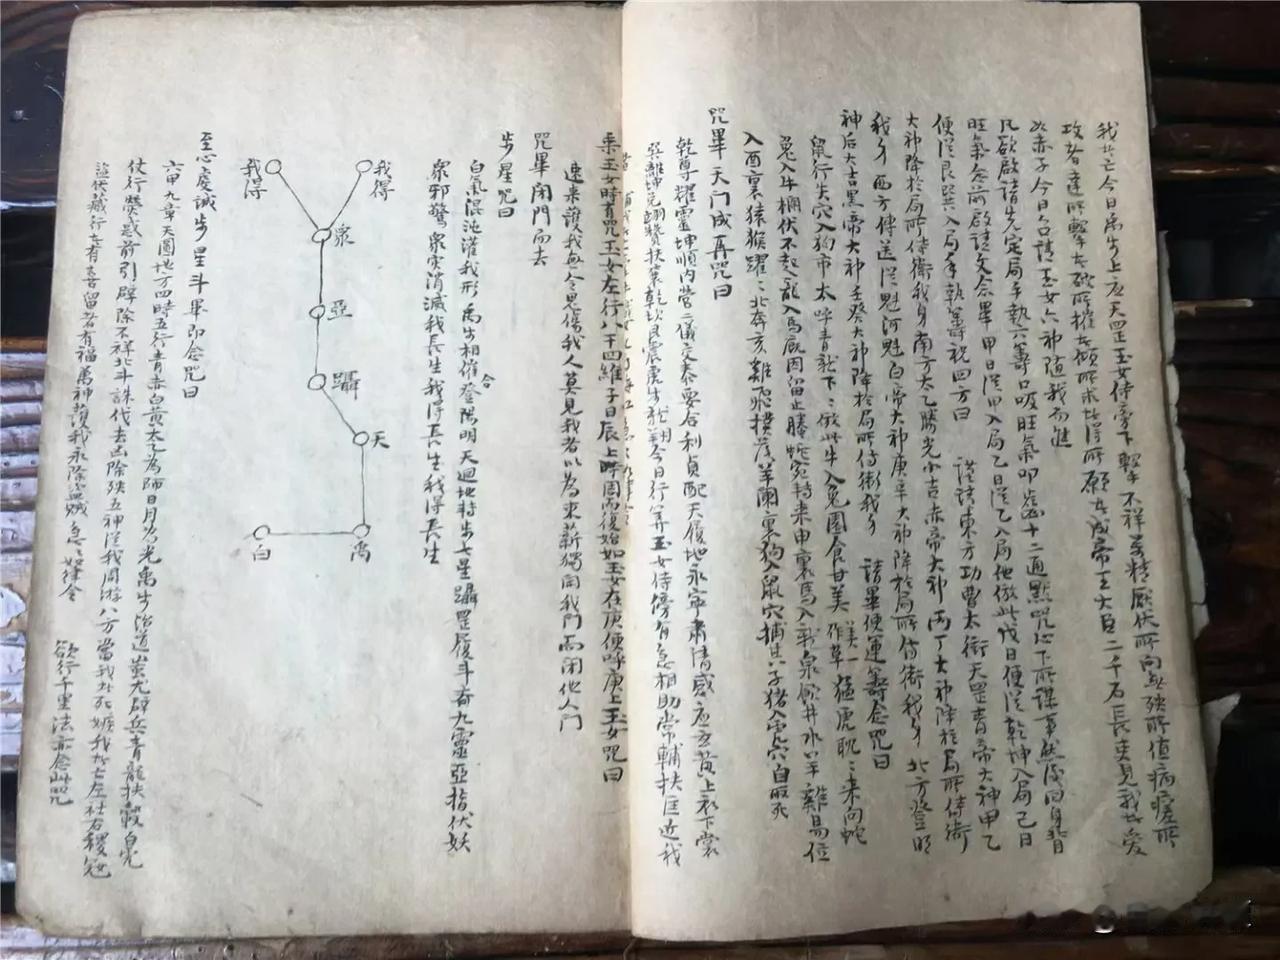 我者亡今日禹步上应天罡玉女侍傍下擊不祥萬精厭伏所向無殃所值病瘥所
攻者達所擊者破所摧者傾所求者得所願者成帝王大臣二千石長吏見我者愛
如赤子今日召請玉女六神随我而進
凡欲啟請先定局手執六籌口吸旺氣叩齒十二通默咒心下所謀事然後回身背
旺氣念前啟請文念畢甲日從甲入局乙日從乙入局他倣此戊日便從乾坤入局己日
便從艮巽入局手執籌祝四方曰 謹請東方功曹太衝天罡青帝大神甲乙
大神降於局所侍衛我身南方太乙勝光小吉赤帝大神丙丁大神降於局所侍衛
我身西方傳送從魁河魁白帝大神庚辛大神降於局所侍衛我身北方登明
神后大吉黑帝大神壬癸大神降於局所侍衛我身 請畢便運籌念咒曰
鼠行失穴入狗市太呼青龍下
兔入牛欄伏不起龍入馬廄因留止
入酉裏猿猴躍
咒畢天门成再咒曰
乾尊耀靈坤順内營二儀交泰要合利貞配天履地永寧肅清感應玄黄上衣下裳
今日行籌玉女侍傍有急相助常輔扶匡近我
乘玉女時青咒玉女左行八干四維子日辰上時周而復始如玉女在庚便呼庚上玉女咒曰
速来護我無令思傷我人莫見我者以為束薪獨開我門而闭他人门
咒畢闭門而去
步星咒曰
白氣混沌灌我形禹步相催合登陽明天迴地轉步七星躡罡履斗齊九靈亞指伏妖
衆邪驚衆灾消滅我長生我得長生我得長生
我得
我得
衆
亞
躡
天
禹
白
至心虔誠步星斗畢即念咒曰
六甲九章天圓地方四時五行青赤白黄太乙為師日月為光禹步治道蚩尤辟兵青龍扶轂白虎
仗行熒惑前引辟除不祥北斗誅伐去凶除殃五神從我周游八方當我者死嫉我者亡左社右稷寇
盜伏藏行者有喜留者有福萬神護我永除盜賊急急如律令 欲行千里法亦念此咒